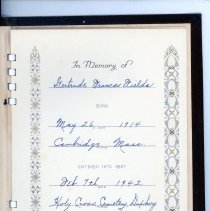 In Memory of
Gertrude Frances Fields
BORN
May 26, 1914
Cambridge, Mass.
ENTERED INTO REST
Feb 7th 1942
Holy Cross Cemetery